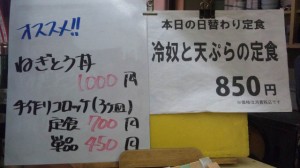 オススメ!!
ねぎとろ丼
1000円
手作りコロッケ(3個)
定食 700円
単品 450円
本日の日替わり定食
冷奴と天ぷらの定食
850円